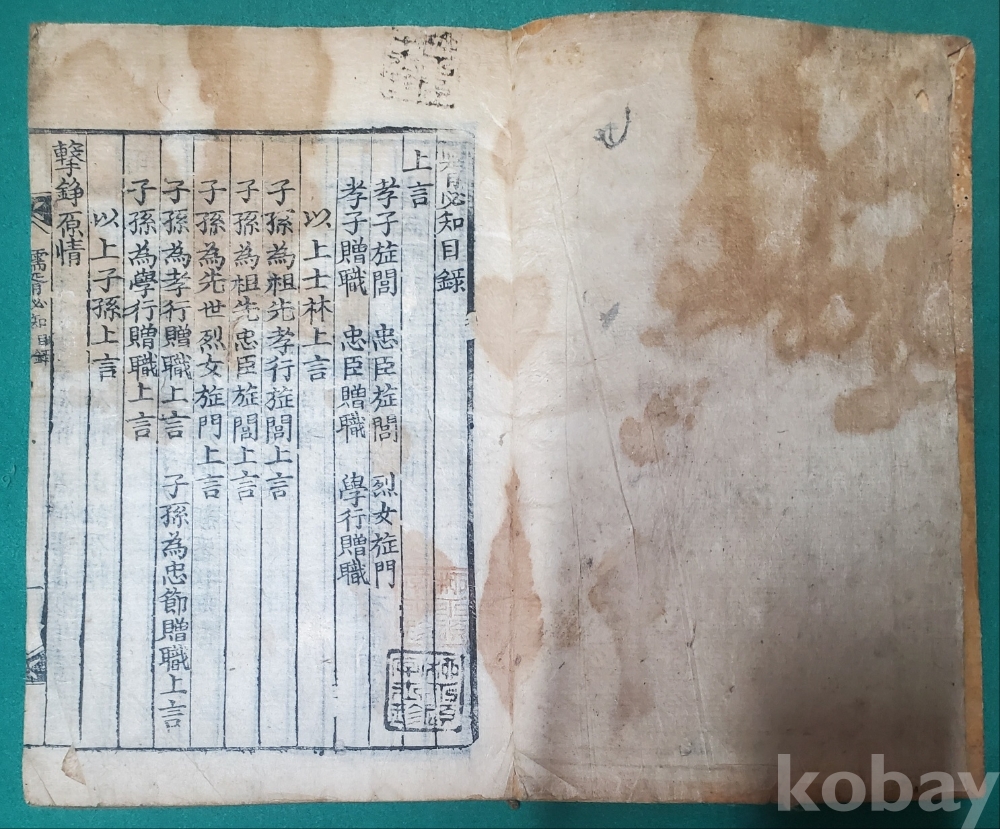 胥必知目錄
上言
孝子旌閭 忠臣旌閭 烈女旌門
孝子贈職 忠臣贈職 學行贈職
以上士林上言
子孫為祖先孝行旌閭上言
子孫為祖先忠臣旌閭上言
子孫為先世烈女旌門上言
子孫為孝行贈職上言 子孫為忠節贈職上言
子孫為學行贈職上言
以上子孫上言
擊錚原情
儒胥必知目錄
kobay